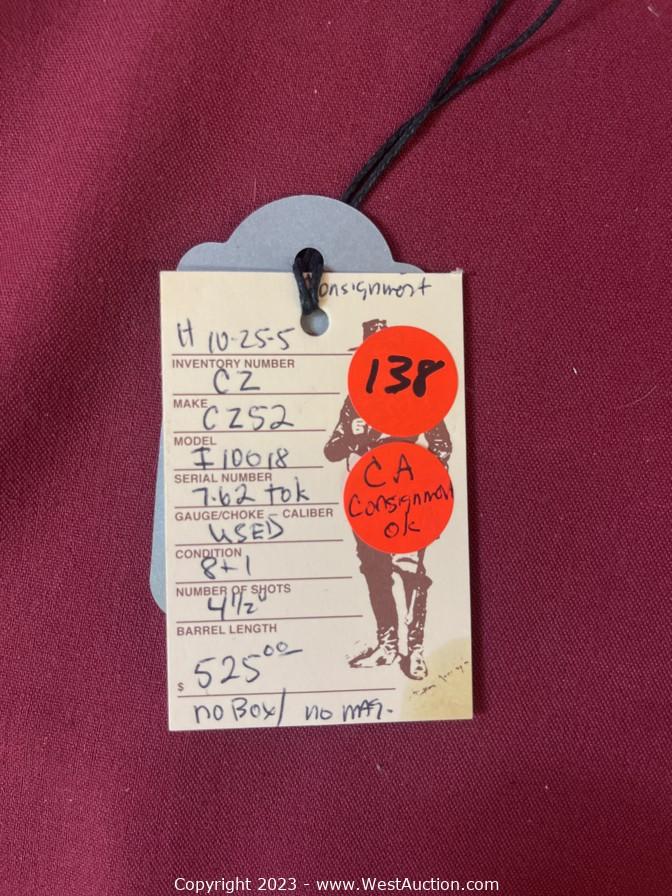 Consignment
H 10-25-5
INVENTORY NUMBER
CZ
MAKE
CZ52
MODEL
I10618
SERIAL NUMBER
7.62 tok
GAUGE/CHOKE - CALIBER
USED
CONDITION
8+1
NUMBER OF SHOTS
4 1/2"
BARREL LENGTH
$ 525.00
no Box/ no mag.
138
CA
Consignment
ok
6
Copyright 2023 - www.WestAuction.com